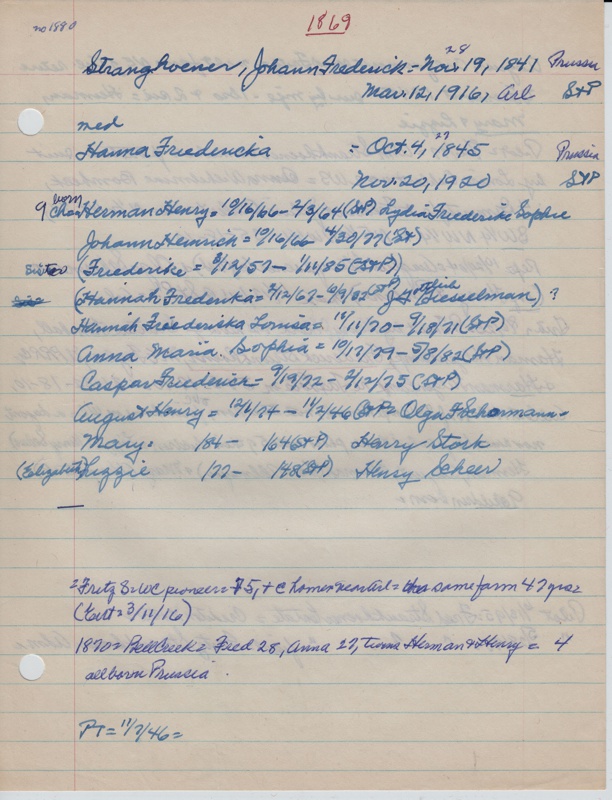 no 1880
1869
28
Stranghoener, Johann Frederick = Nov. 19, 1841 Prussia
Mar. 12, 1916, Arl StP
med
27
Hanna Friedericka = Oct. 4, 1845 Prussia
Nov. 20, 1920 StP
9 Chn Herman Henry = 10/16/66 - 2/3/64 (StP) Lydia Friederike Sophie
Johann Heinrich = 10/16/66 4/30/77 (St)
Sister (Friederike = 8/12/57 - 1/11/85 (StP)
(Hannah Frederika = 2/12/67 - 10/9/52 (StP) J H Diesselman) ?
Hannah Friedericka Louisa = 10/11/70 - 9/18/71 (StP)
Anna Maria Sophia = 10/12/79 - 5/8/82 (StP)
Caspar Friederick = 9/19/72 - 2/12/75 (StP)
August Henry = 12/1/74 - 11/2/46 (StP = Olga F Schormann -
Mary = 184 - 164 StP) Harry Stork
(Elizabeth) Lizzie 177 - 148 (StP) Henry Scheer
= Fritz S = WC pioneer = 75, + C home near Arl = same farm 47 yrs =
(Cort = 3/11/16)
1870 = Fred 28, Anna 27, twins Herman + Henry = 4
all born Prussia
PT = 11/7/46 =